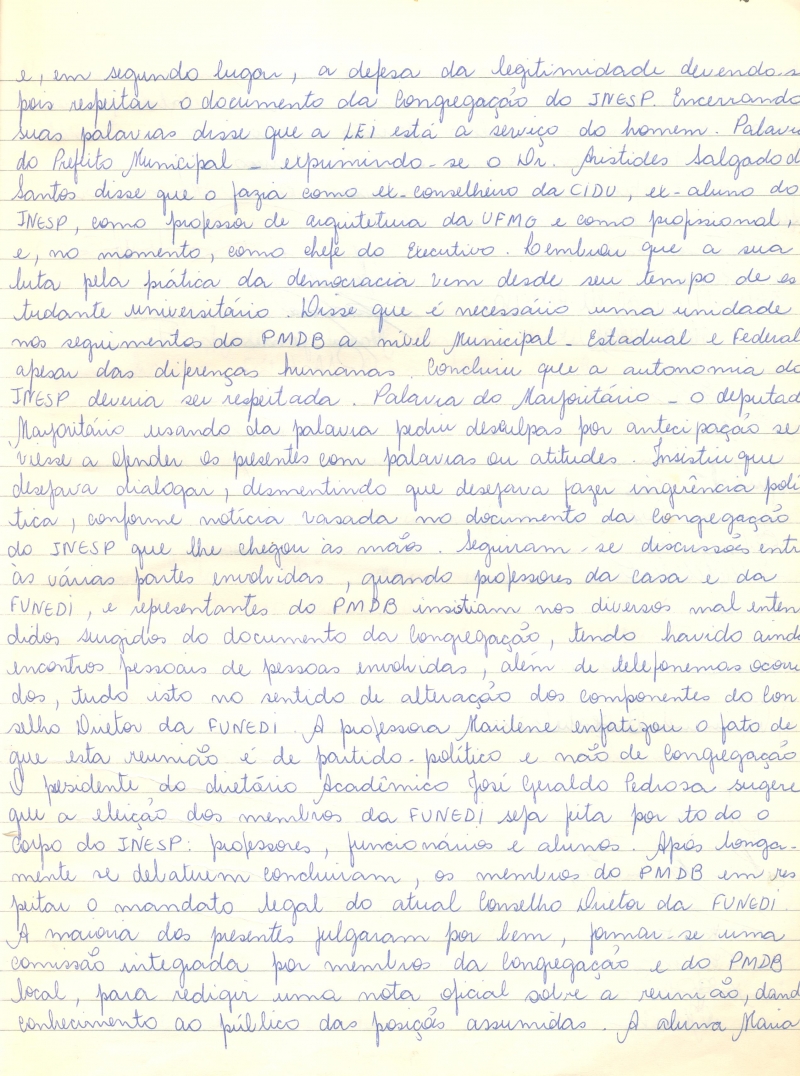 e, em segundo lugar, a defesa da legitimidade devendo-s
pois respeitar o documento da Congregação do INESP. Encerrando
suas palavras disse que a LEI está a serviço do homem. Palavra
do Prefeito Municipal - expumindo-se o Dr. Aristides Salgado d
Santos disse que o fazia como ex-conselheiro da CIDU, ex-aluno do
INESP, como professor de arquitetura da UFMG e como profissional,
e, no momento, como chefe do Executivo. Lembrou que a sua
luta pela prática da democracia vem desde seu tempo de es
tudante universitário. Disse que é necessário uma unidade
nos seguimentos do PMDB a nível Municipal - Estadual e Federal
apesar das diferenças humanas. Concluiu que a autonomia do
INESP deveria ser respeitada. Palavra do Marjoritário - o deputad
Marjoritário usando da palavra pediu desculpas por antecipação se
viesse a ofender os presentes com palavras ou atitudes. Insistiu que
desejava dialogar, desmentindo que desejava fazer ingerência polí
tica, conforme notícia vasada no documento da Congregação
do INESP que lhe chegou às mãos. Seguiram-se discussões entr
às várias partes envolvidas, quando professores da casa e da
FUNEDI, e representantes do PMDB insistiam nos diversos mal enten
didos surgidos do documento da Congregação, tendo havido aind
encontros pessoais de pessoas envolvidas, além de telefonemas ocorri
dos, tudo isto no sentido de alteração dos componentes do Con
selho Diretor da FUNEDI. A professora Marilene enfatizou o fato de
que esta reunião é de partido-político e não de Congregação
O presidente do diretário Acadêmico José Geraldo Pedrosa sugere
que a eleição dos membros da FUNEDI seja feita por todo o
corpo do INESP: professores, funcionários e alunos. Após longa-
mente se debaterem concluiram, os membros do PMDB em res
peitar o mandato legal do atual Conselho Diretor da FUNEDI.
A maioria dos presentes julgaram por bem, formar-se uma
comissão integrada por membros da Congregação e do PMDB
local, para redigir uma nota oficial sobre a reunião, dand
conhecimento ao público das posições assumidas. A aluna Maria